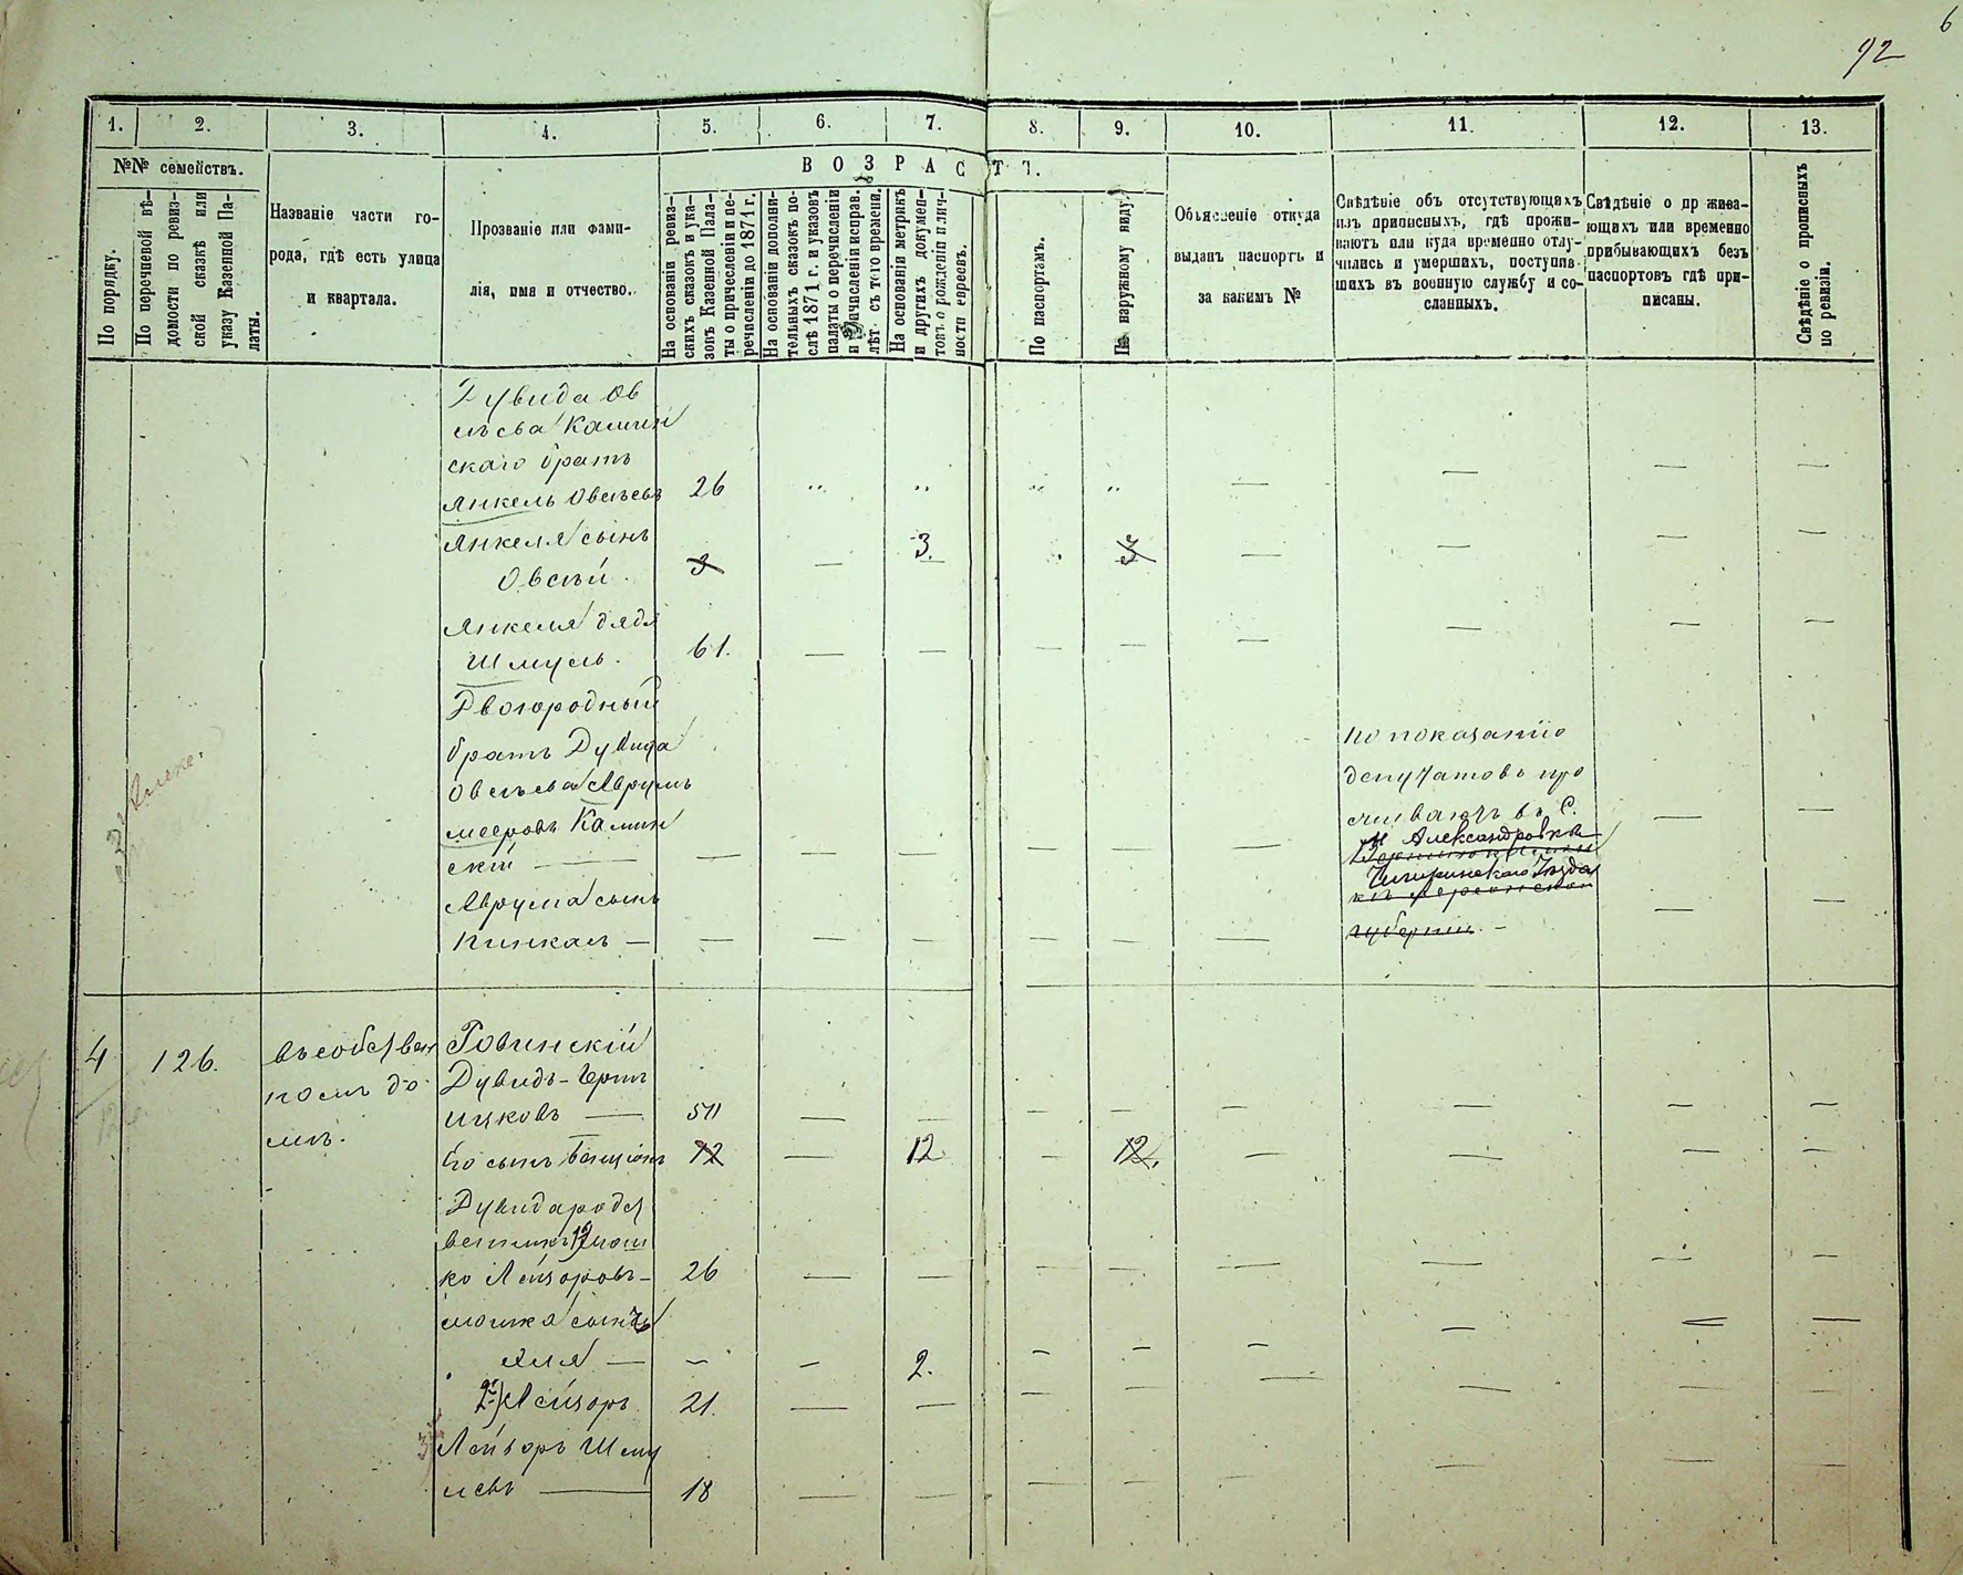 6
92
1. 2. 3. 4. 5. 6. 7. 8. 9. 10. 11. 12. 13.
№№ семействъ.
По порядку.
По перечневой вѣ-
домости по ревиз-
ской сказкѣ или
указу Казенной Па-
латы.
Названіе части го-
рода, гдѣ есть улица
и квартала.
Прозваніе или фами-
лія, имя и отчество.
ВОЗРАСТЪ.
На основаніи ревиз-
скихъ сказокъ и ука-
зовъ Казенной Пала-
ты о причисленіи и пе-
речисленіи до 1871 г.
На основаніи дополни-
тельныхъ сказокъ по-
слѣ 1871 г. и указовъ
палаты о перечисленіи
и причисленіи исправ.
лѣт съ того времени.
На основаніи метрикъ
и другихъ докумен-
товъ о рожденіи и лич-
ности евреевъ.
По паспортамъ.
По наружному виду.
Объясненіе откуда
выданъ паспортъ и
за какимъ №
Свѣдѣніе объ отсутствующихъ
изъ приписныхъ, гдѣ прожи-
ваютъ или куда временно отлу-
чились и умершихъ, поступив-
шихъ въ военную службу и со-
сланныхъ.
Свѣдѣніе о пр жива-
ющихъ или временно
прибывающихъ безъ
паспортовъ гдѣ при-
писаны.
Свѣдѣніе о прописныхъ
по ревизіи.
Дувида Ов
сѣева Камин
скаго братъ
Янкель Овсѣевъ 26 " " " "
Янкеля сынъ
Овсѣй. 3 — 3. 3 — — — —
Янкеля дядя
Шмуль. 61. — — — — — — — —
Двоюродный
братъ Дувида
Овсѣева Аврумъ
Мееровъ Камин
скій — — — — — — —
Аврума сынъ
Пинкасъ — — — — — — —
по показанію
депутатовъ про
живаютъ въ С.
Александровка
Чигиринскаго Уѣзда
губерніи. —
4 126. въ собствен
номъ до
мѣ.
Ровинскій
Дувидъ-Герш
Ицковъ — 50 — — — — — — — —
Его сынъ Бенціонъ 12 — 12 — 12. — — — —
Дувида родст
венникъ Мош
ко Лейзоровъ — 26 — — — — — — — —
Мошка сынъ
Эля — — — 2. — — — — — —
2й) Лейзоръ 21. — — — — — — — —
Лейзоръ Шму
левъ — 18 — — — — — — — —